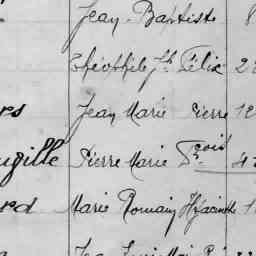 Jean-Baptiste
Théophile Jh Félix 2
Jean Marie Pierre 12
Pierre Marie Fçois 4
rd Marie Romain Hyacinthe 1